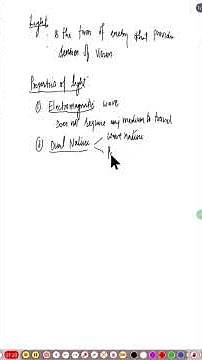 Light
is the form of energy that provides
sensation of Vision
Properties of light
① Electromagnetic wave
Does not require any medium to travel
② Dual Nature < wave nature
P